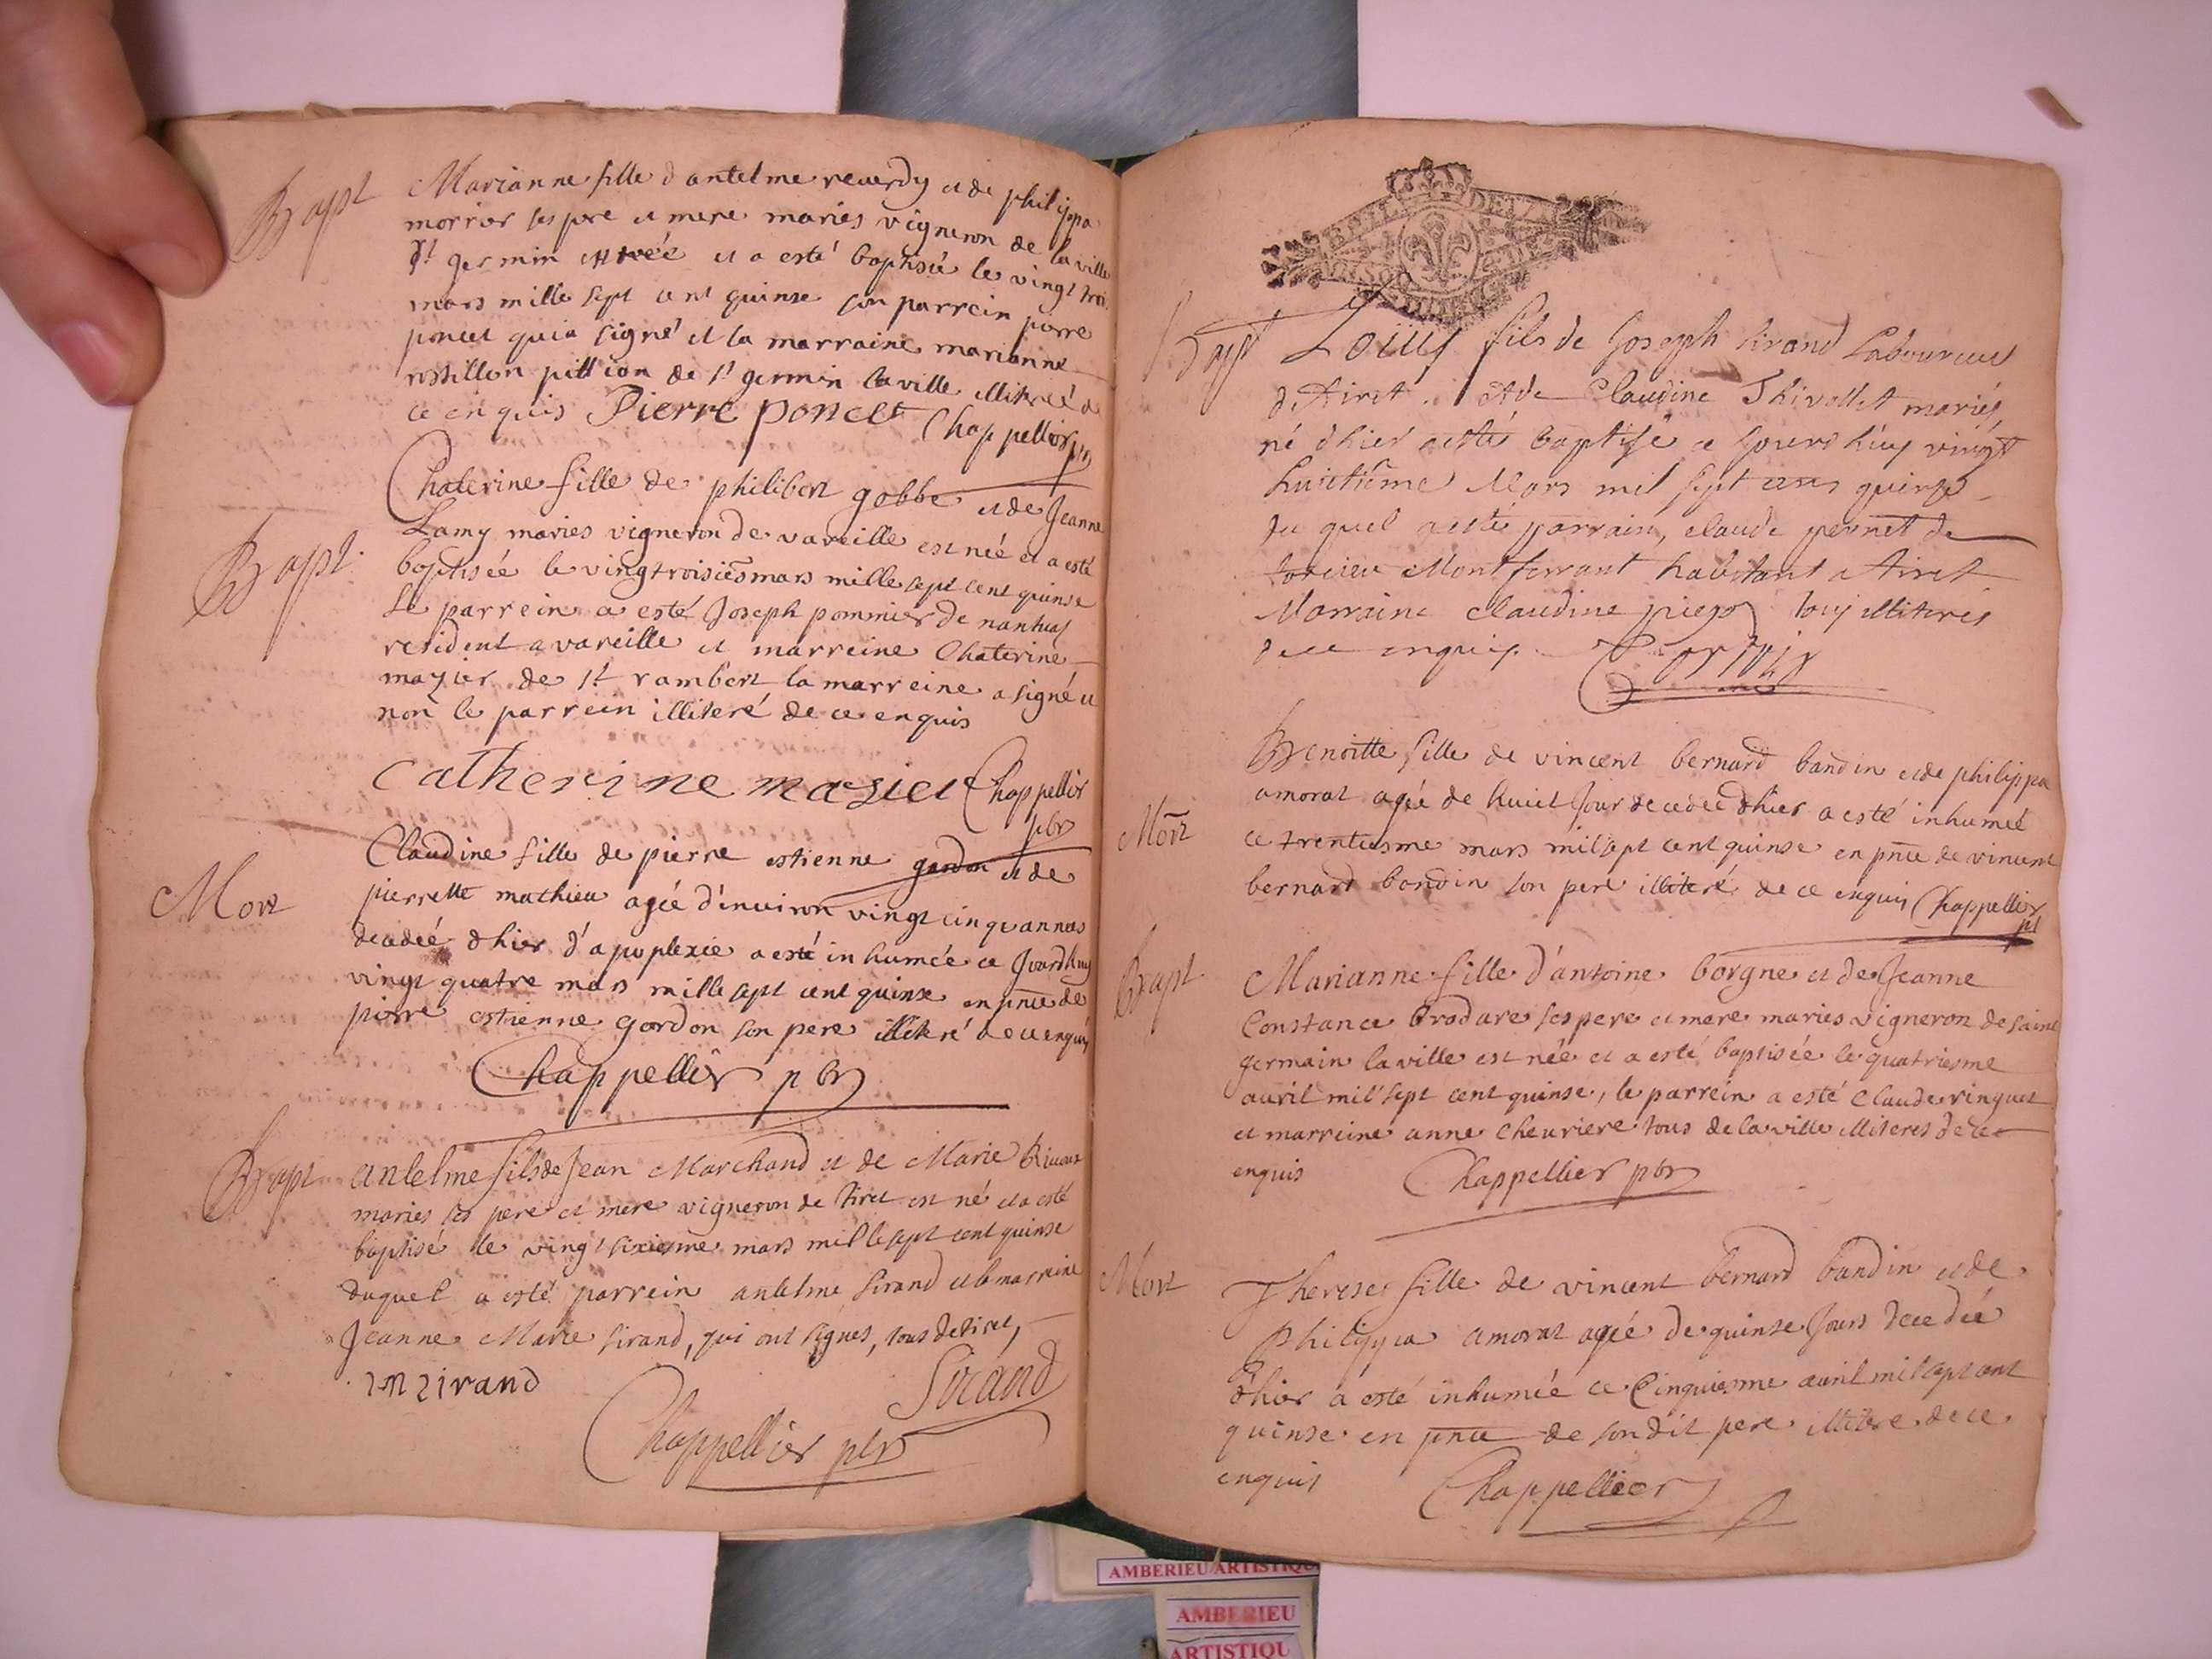 Bapt
Marianne fille d'antelme reverdy et de philippa
morrier ses pere et mere mariés vigneron de la ville
St germin est née et a esté baptisée le vingt trois
mars mille sept cent quinse son parrein pierre
poncet qui a signé et la marraine marianne
pillion de St germin la ville illiterée de
ce enquis Pierre poncet Chappellier pbr
Bapt
Chaterine fille de philibert gobbe et de Jeanne
Lamy mariés vigneron de vareille est née et a esté
baptisée le vingtroisiesme mars mille sept cent quinse
Le parrein a esté Joseph pommier de nantuas
resident a vareille et marreine Chaterine
mazier de St rambert la marreine a signé et
non le parrein illiteré de ce enquis
catherine mazier Chappellier
pbr
Mort
Claudine fille de pierre estienne gordon et de
pierrette mathieu agée d'environ vingt cinq années
decedeé dhier d'apoplexie a esté inhumée ce Jourdhuy
vingt quatre mars mille sept cent quinse en pnce de
pierre estienne gordon son pere illiteré de ce enquis
Chappellier pbr
Bapt
antelme fils de Jean Marchand et de Marie
mariés ses pere et mere vigneron de Tiret est né et a esté
baptisé le vingt sixiesme mars mille sept cent quinse
duquel a esté parrein antelme Sirand et la marreine
Jeanne Marie Sirand, qui ont signés, tous de tiret,
Sirand
Chappellier pbr
Bapt
Loüis fils de Joseph Sirand Laboureur
de Tiret et de Claudine Thivollet mariés
né dhier a esté baptisé ce jourdhuy vingt
huictiéme Mars mil sept cens quinze
du quel a esté parrain, claude pernet de
torcieu Montferrant habitant a Tiret
Marraine claudine tous illiterés
de ce enquis.
Mort
Benoitte fille de vincent bernard bandin et de philippa
amorat agée de huict Jour decedée dhier a esté inhumeé
ce trentiesme mars mil sept cent quinse en pnce de vincent
bernard bandin son pere illiteré de ce enquis Chappellier
pt
Bapt
Marianne fille d'antoine borgne et de Jeanne
Constance Brodare ses pere et mere mariés vigneron de saint
germain la ville est née et a esté baptisée le quatriesme
avril mil sept cent quinse, le parrein a esté Claude ringuet
et marreine anne cheuriere tous de la ville illiterés de ce
enquis Chappellier pbr
Mort
Therese fille de vincent bernard bandin et de
philippa amorat agée de quinse Jours decedée
dhier a esté inhumée ce Cinquiesme avril mil sept cent
quinse en pnce de son dit pere illitere de ce
enquis Chappellier
AMBERIEU ARTISTIQU
AMBERIEU
ARTISTIQU